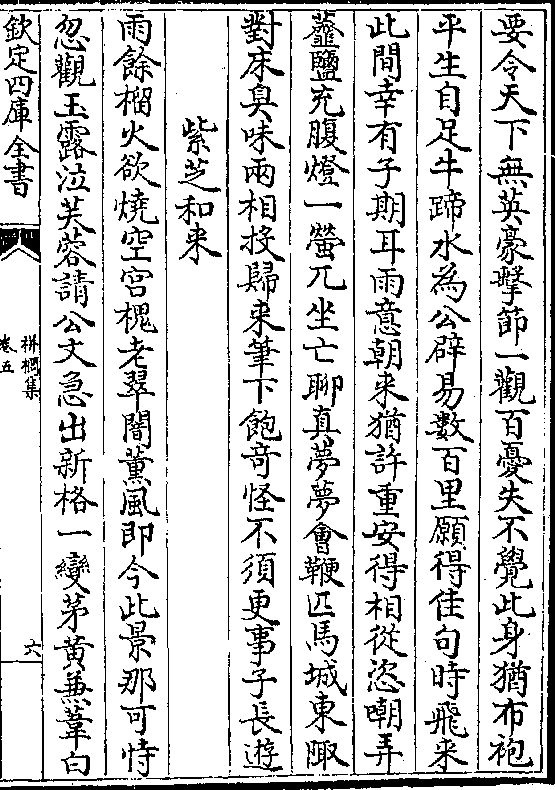 要令天下無英豪擊節一觀百憂失不覺此身猶布袍
平生自足牛蹄水為公辟易數百里願得佳句時飛来
此間幸有子期耳雨意朝来猶許重安得相從恣嘲弄
虀鹽充腹燈一螢兀坐亡聊真夢夢會鞭匹馬城東陬
對床臭味兩相投歸来筆下飽竒怪不須更事子長遊
紫芝和来
雨餘榴火欲燒空宫槐老翠闇薫風即今此景那可恃
忽觀玉露泣芙蓉請公丈急出新格一變茅黄兼葦白
欽定四庫全書
栟櫚集
卷五
六